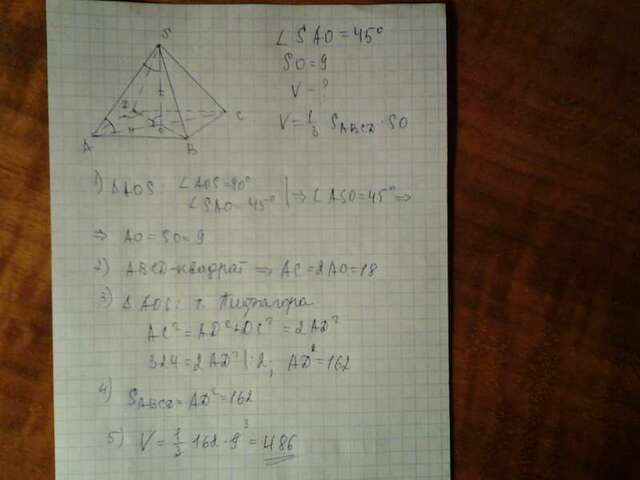 S
A
B
C
D
O
∠SAO = 45°
SO = 9
V - ?
V = 1/3 S_ABCD · SO
1) △AOS ∠AOS = 90°
∠SAO = 45° | ⇒ ∠ASO = 45° ⇒
⇒ AO = SO = 9
2) ABCD - квадрат ⇒ AC = 2AO = 18
3) △ADC: т. Пифагора
AC² = AD² + DC² = 2AD²
324 = 2AD² | : 2; AD² = 162
4) S_ABCD = AD² = 162
5) V = 1/3 · 162 · 9 3 = 486